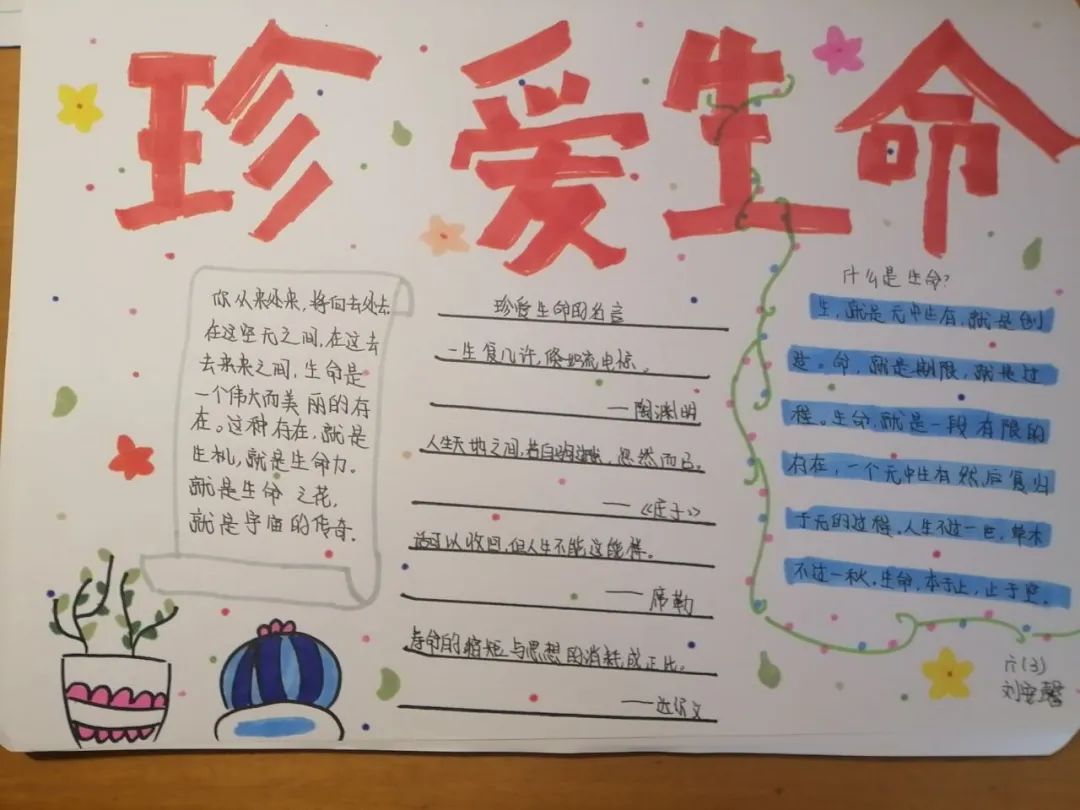 珍爱生命
你从来处来,将向去处去
在这空无之间,在这去
去来来之间,生命是
一个伟大而美丽的存
在。这种存在,就是
生机,就是生命力。
就是生命之花,
就是宇宙的传奇.
珍爱生命的名言
一生复几许,倏如流电惊。
—陶渊明
人生天地之间,若白驹过隙,忽然而已。
—《庄子》
话可以收回,但人生不能这能样。
—席勒
寿命的缩短与思想的消耗成正比。
—达尔文
什么是生命?
生,就是无中生有,就是创
造。命,就是期限,就是过
程。生命,就是一段有限的
存在,一个无中生有然后复归
于无的过程。人生不过一世,草木
不过一秋。生命,本于上,止于空。
六(3)
刘